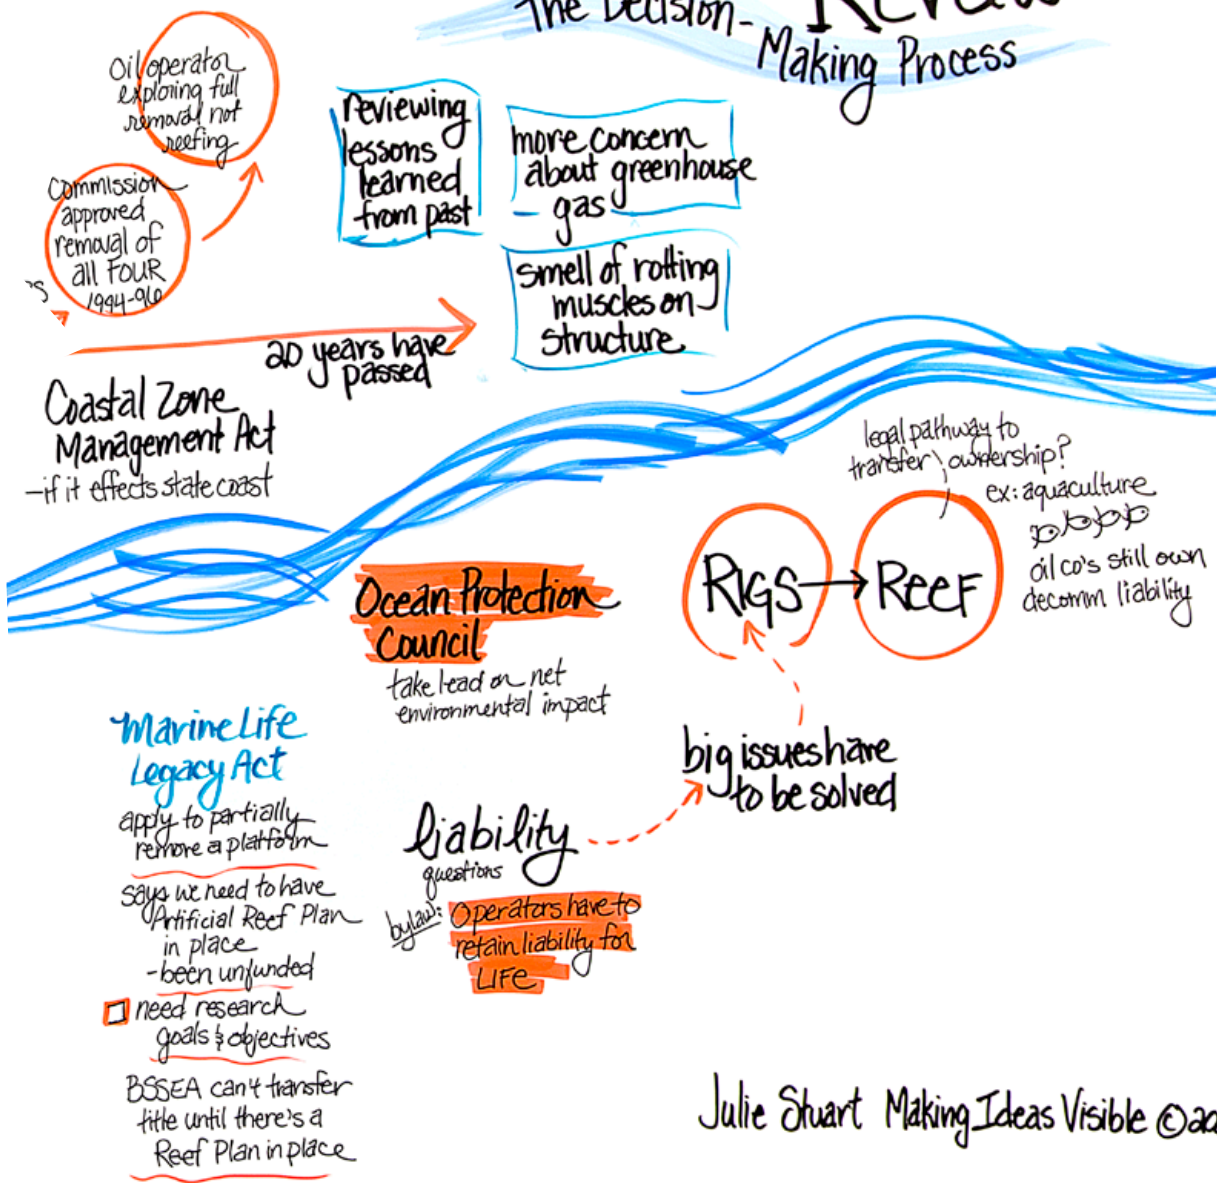 The Decision-
Making Process
Oil operator
exploring full
removal not
reefing
Commission
approved
removal of
all FOUR
1994-96
's
20 years have
passed
reviewing
lessons
learned
from past
more concern
about greenhouse
gas
smell of rotting
muscles on
structure
Coastal Zone
Management Act
-if it effects state coast
legal pathway to
transfer ownership?
ex: aquaculture
oil co's still own
decomm liability
RIGS → REEF
Ocean Protection
Council
take lead on net
environmental impact
big issues have
to be solved
Marine Life
Legacy Act
apply to partially
remove a platform
says we need to have
Artificial Reef Plan
in place
-been unfunded
need research
goals & objectives
BSSEA can't transfer
title until there's a
Reef Plan in place
liability
questions
bylaw: Operators have to
retain liability for
LIFE
Julie Stuart Making Ideas Visible ©20